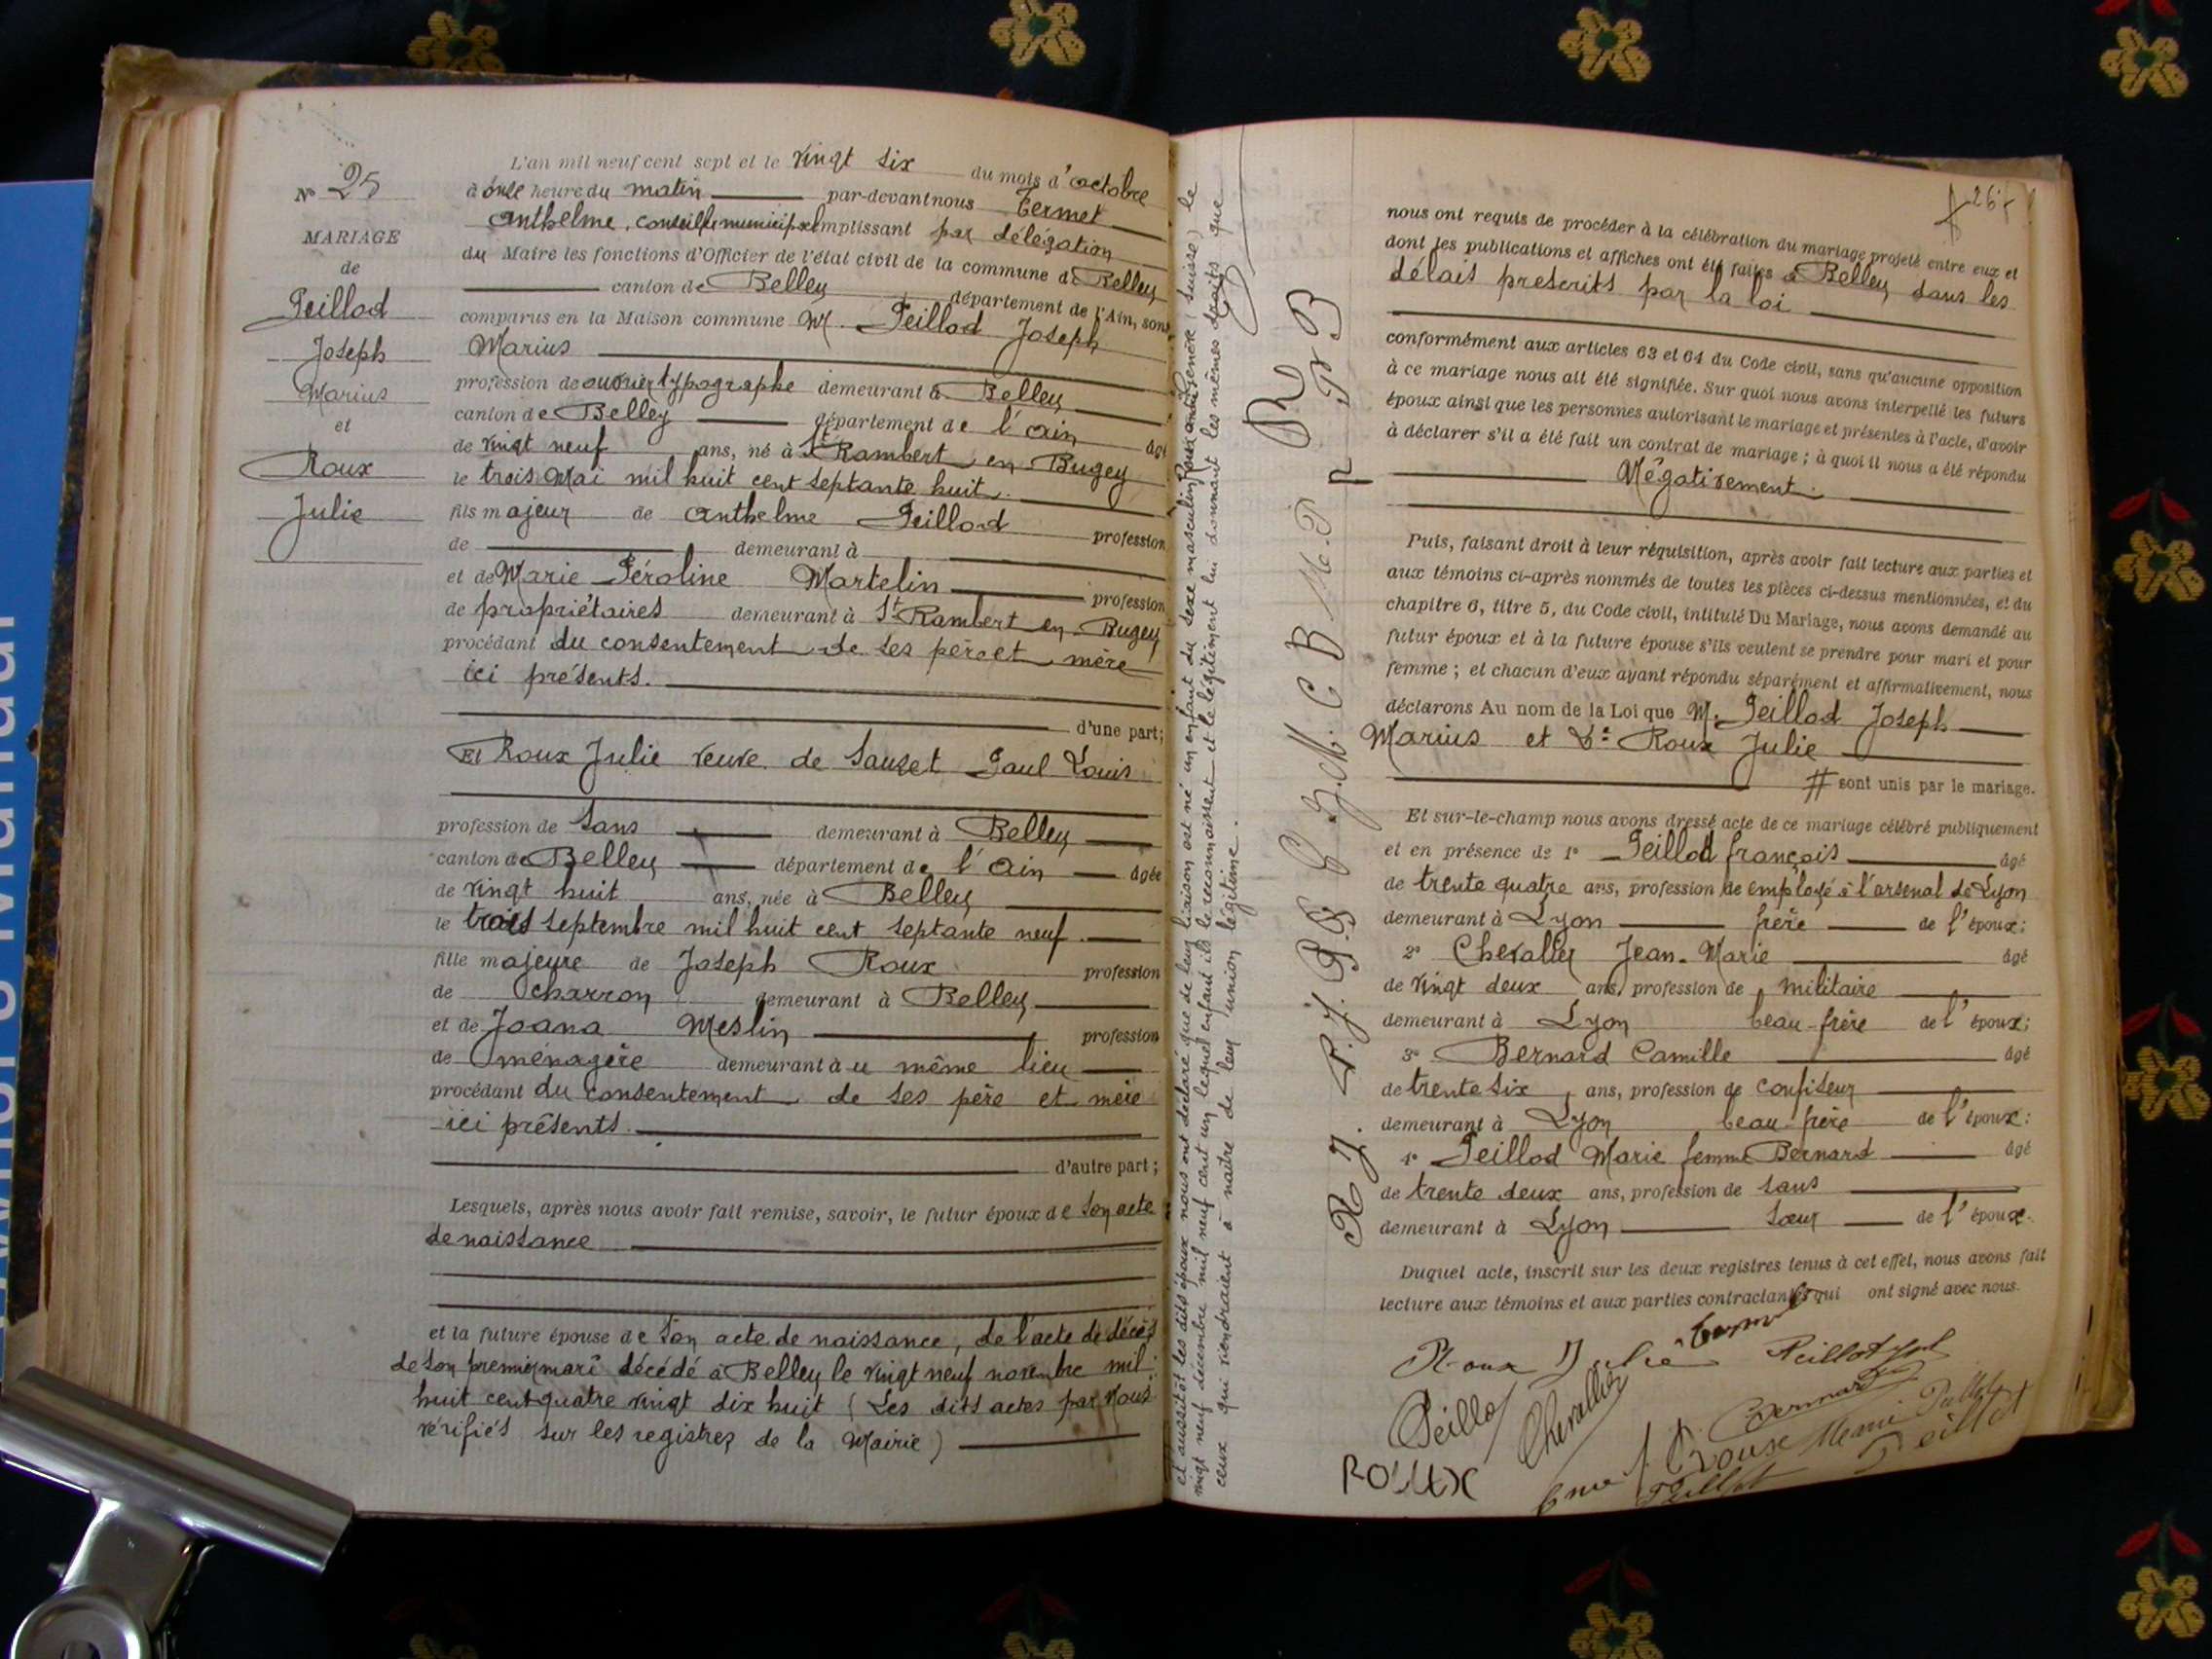 N° 25
MARIAGE
de
Peillod
Joseph
Marius
et
Roux
Julie
L'an mil neuf cent sept et le vingt six du mois d'octobre
à onze heure du matin par-devant nous Termet
Anthelme, conseiller municipal remplissant par délégation
du Maire les fonctions d'Officier de l'état civil de la commune de Belley
canton de Belley département de l'Ain, sont
comparus en la Maison commune M. Peillod Joseph
Marius
profession de ouvrier typographe demeurant à Belley
canton de Belley département de l'Ain âgé
de vingt neuf ans, né à St Rambert en Bugey
le trois Mai mil huit cent septante huit.
fils majeur de Anthelme Peillod profession
de demeurant à
et de Marie Péroline Martelin profession
de propriétaires demeurant à St Rambert en Bugey
procédant du consentement de ses père et mère
ici présents.
d'une part;
Et Roux Julie veuve de Sauzet Paul Louis
profession de sans demeurant à Belley
canton de Belley département de l'Ain âgée
de vingt huit ans, née à Belley
le trois septembre mil huit cent septante neuf.
fille majeure de Joseph Roux profession
de charron demeurant à Belley
et de Joana Meslin profession
de ménagère demeurant au même lieu
procédant du consentement de ses père et mère
ici présents.
d'autre part;
Lesquels, après nous avoir fait remise, savoir, le futur époux de son acte
de naissance
et la future épouse de son acte de naissance, de l'acte de décès
de son premier mari décédé à Belley le vingt neuf novembre mil
huit cent quatre vingt dix huit (Les dits actes par Nous
vérifiés sur les registres de la Mairie)
et aussitôt les dits époux nous ont déclaré que de leur liaison est né un enfant du sexe masculin Roux André Genève (Suisse) le
vingt neuf décembre mil neuf cent un lequel enfant ils le reconnaissent et le légitiment lui donnant les mêmes droits que
ceux qui viendraient à naître de leur union légitime.
R J. P. J. P B C J. M. C B M. P R
26
nous ont requis de procéder à la célébration du mariage projeté entre eux et
dont les publications et affiches ont été faites à Belley dans les
délais prescrits par la loi
conformément aux articles 63 et 64 du Code civil, sans qu'aucune opposition
à ce mariage nous ait été signifiée. Sur quoi nous avons interpellé les futurs
époux ainsi que les personnes autorisant le mariage et présentes à l'acte, d'avoir
à déclarer s'il a été fait un contrat de mariage; à quoi il nous a été répondu
Négativement.
Puis, faisant droit à leur réquisition, après avoir fait lecture aux parties et
aux témoins ci-après nommés de toutes les pièces ci-dessus mentionnées, et du
chapitre 6, titre 5, du Code civil, intitulé Du Mariage, nous avons demandé au
futur époux et à la future épouse s'ils veulent se prendre pour mari et pour
femme; et chacun d'eux ayant répondu séparément et affirmativement, nous
déclarons Au nom de la Loi que M. Peillod Joseph
Marius et De Roux Julie
# sont unis par le mariage.
Et sur-le-champ nous avons dressé acte de ce mariage célébré publiquement
et en présence de 1° Peillod françois âgé
de trente quatre ans, profession de employé à l'arsenal de Lyon
demeurant à Lyon frère de l'époux;
2° Chevalier Jean-Marie âgé
de vingt deux ans, profession de militaire
demeurant à Lyon beau-frère de l'époux;
3° Bernard Camille âgé
de trente six ans, profession de confiseur
demeurant à Lyon beau-frère de l'époux;
4° Peillod Marie femme Bernard âgé
de trente deux ans, profession de sans
demeurant à Lyon sœur de l'époux.
Duquel acte, inscrit sur les deux registres tenus à cet effet, nous avons fait
lecture aux témoins et aux parties contractantes qui ont signé avec nous.
Roux Julie Peillod
Peillod Chevallier Bernard
ROUX Peillod Peillod